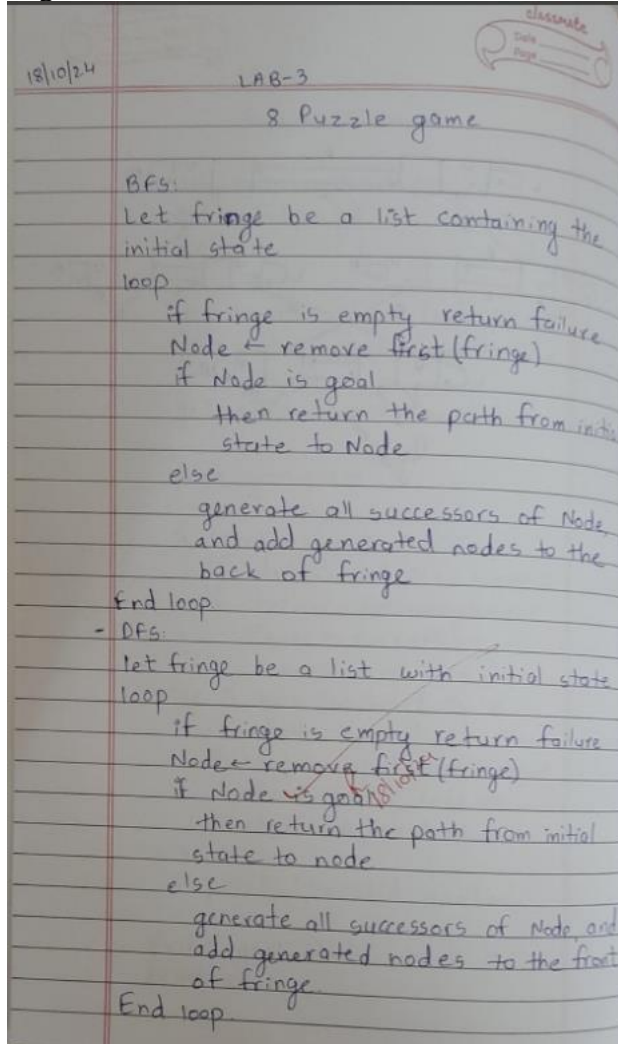 classmate
Date
Page
18/10/24
LAB-3
8 Puzzle game
BFS:
Let fringe be a list containing the
initial state
loop
if fringe is empty return failure
Node ← remove first (fringe)
if Node is goal
then return the path from initia
state to Node
else
generate all successors of Node,
and add generated nodes to the
back of fringe
End loop
- DFS:
let fringe be a list with initial state
loop
if fringe is empty return failure
Node ← remove first (fringe)
if Node is goal
then return the path from initial
state to node
else
generate all successors of Node, and
add generated nodes to the front
of fringe.
End loop.